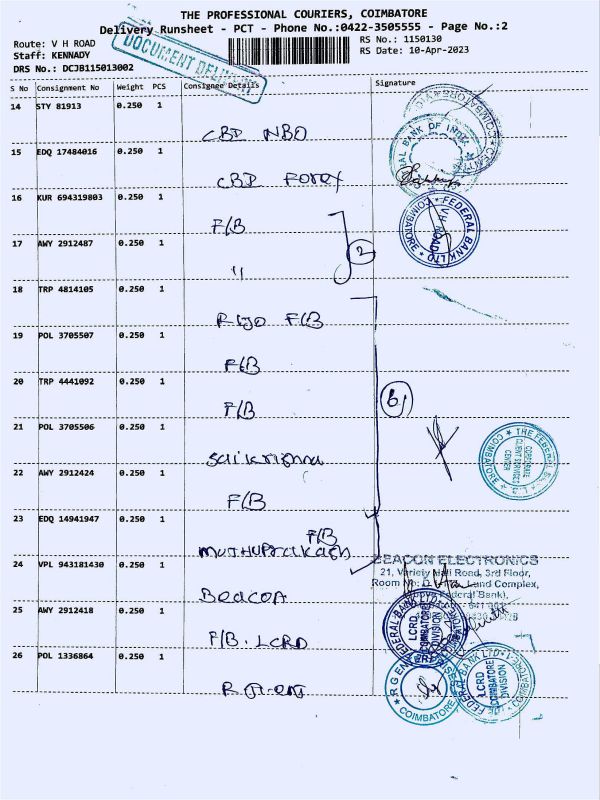 THE PROFESSIONAL COURIERS, COIMBATORE
Delivery Runsheet - PCT - Phone No.:0422-3505555 - Page No.:2
Route: V H ROAD
RS No.: 1150130
Staff: KENNADY
RS Date: 10-Apr-2023
DRS No.: DCJB115013002
DOCUMENT DELIVERY
S No Consignment No Weight PCS Consignee Details Signature
14 STY 81913 0.250 1
CBD NBO
15 EDQ 17484016 0.250 1
CBD
16 KUR 694319803 0.250 1
F/B
17 AWY 2912487 0.250 1
"
2
18 TRP 4814105 0.250 1
F/B
19 POL 3705507 0.250 1
F/B
20 TRP 4441092 0.250 1
F/B
6
21 POL 3705506 0.250 1
Saikrishna
22 AWY 2912424 0.250 1
F/B
23 EDQ 14941947 0.250 1
F/B
Muthuprakash
24 VPL 943181430 0.250 1
Beacon
25 AWY 2912418 0.250 1
F/B. LCRD
26 POL 1336864 0.250 1
FEDERAL BANK LTD
V.H. ROAD
COIMBATORE
THE FEDERAL
CORPORATE
CLIENT SERVICES
CENTER
COIMBATORE
BEACON ELECTRONICS
21, Variety Hall Road, 3rd Floor,
Land Complex,
Federal Bank),
FEDERAL BANK
LCRD
COIMBATORE
DIVISION
COIMBATORE
FEDERAL BANK LTD
LCRD
COIMBATORE
DIVISION
COIMBATORE